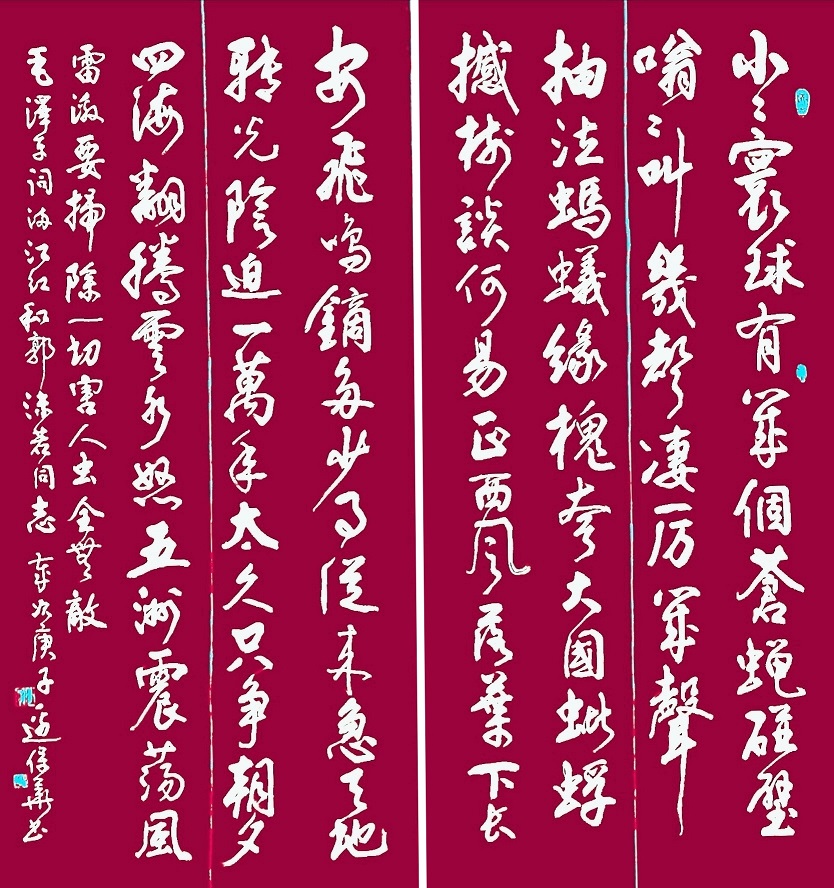 小〻寰球有幾個蒼蝇碰壁
嗡〻叫幾声凄厉幾聲
抽泣螞蟻緣槐夸大國蚍蜉
撼樹談何易正西風落葉下长
安飛鳴鏑多少事從来急天地
转光陰迫一萬年太久只争朝夕
四海翻騰雲水怒五洲震荡風
雷激要掃除一切害人虫全無敵
毛澤东词满江红和郭沫若同志 岁次庚子 華书